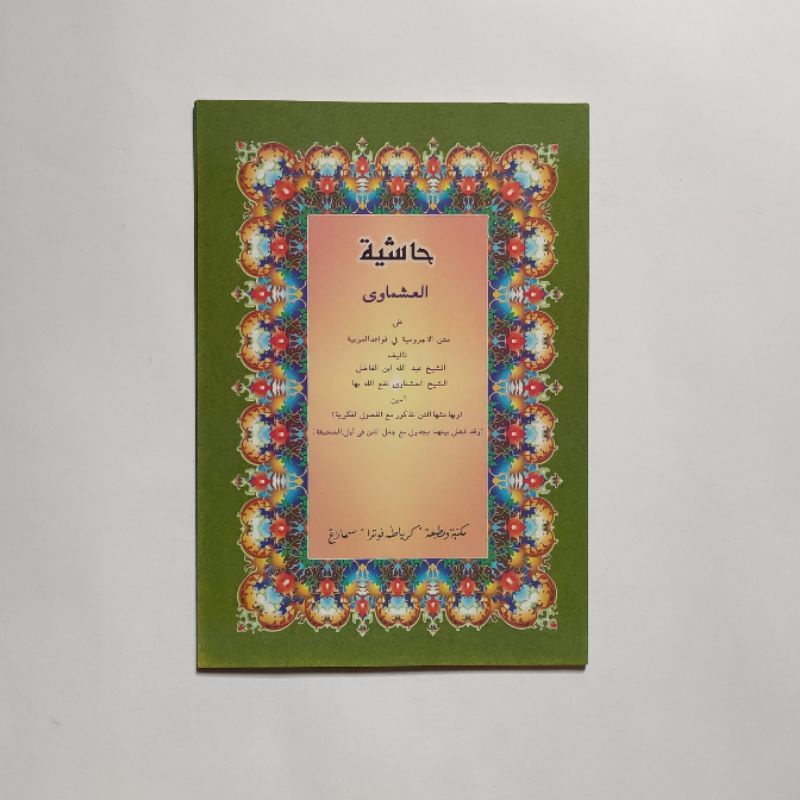 حاشية
العشماوى
على
متن الاجرومية في قواعد العربية
تأليف
الشيخ عبد الله ابن الفاضل
الشيخ العشماوى نفع الله بها
آمين
(وبهامشها المتن المذكور مع الفصول الفكرية)
(وقد فصل بينهما بجدول مع جعل المتن فى أول الصحيفة)
مكتبة ومطبعة "كرياطه فوترا" سماراڠ